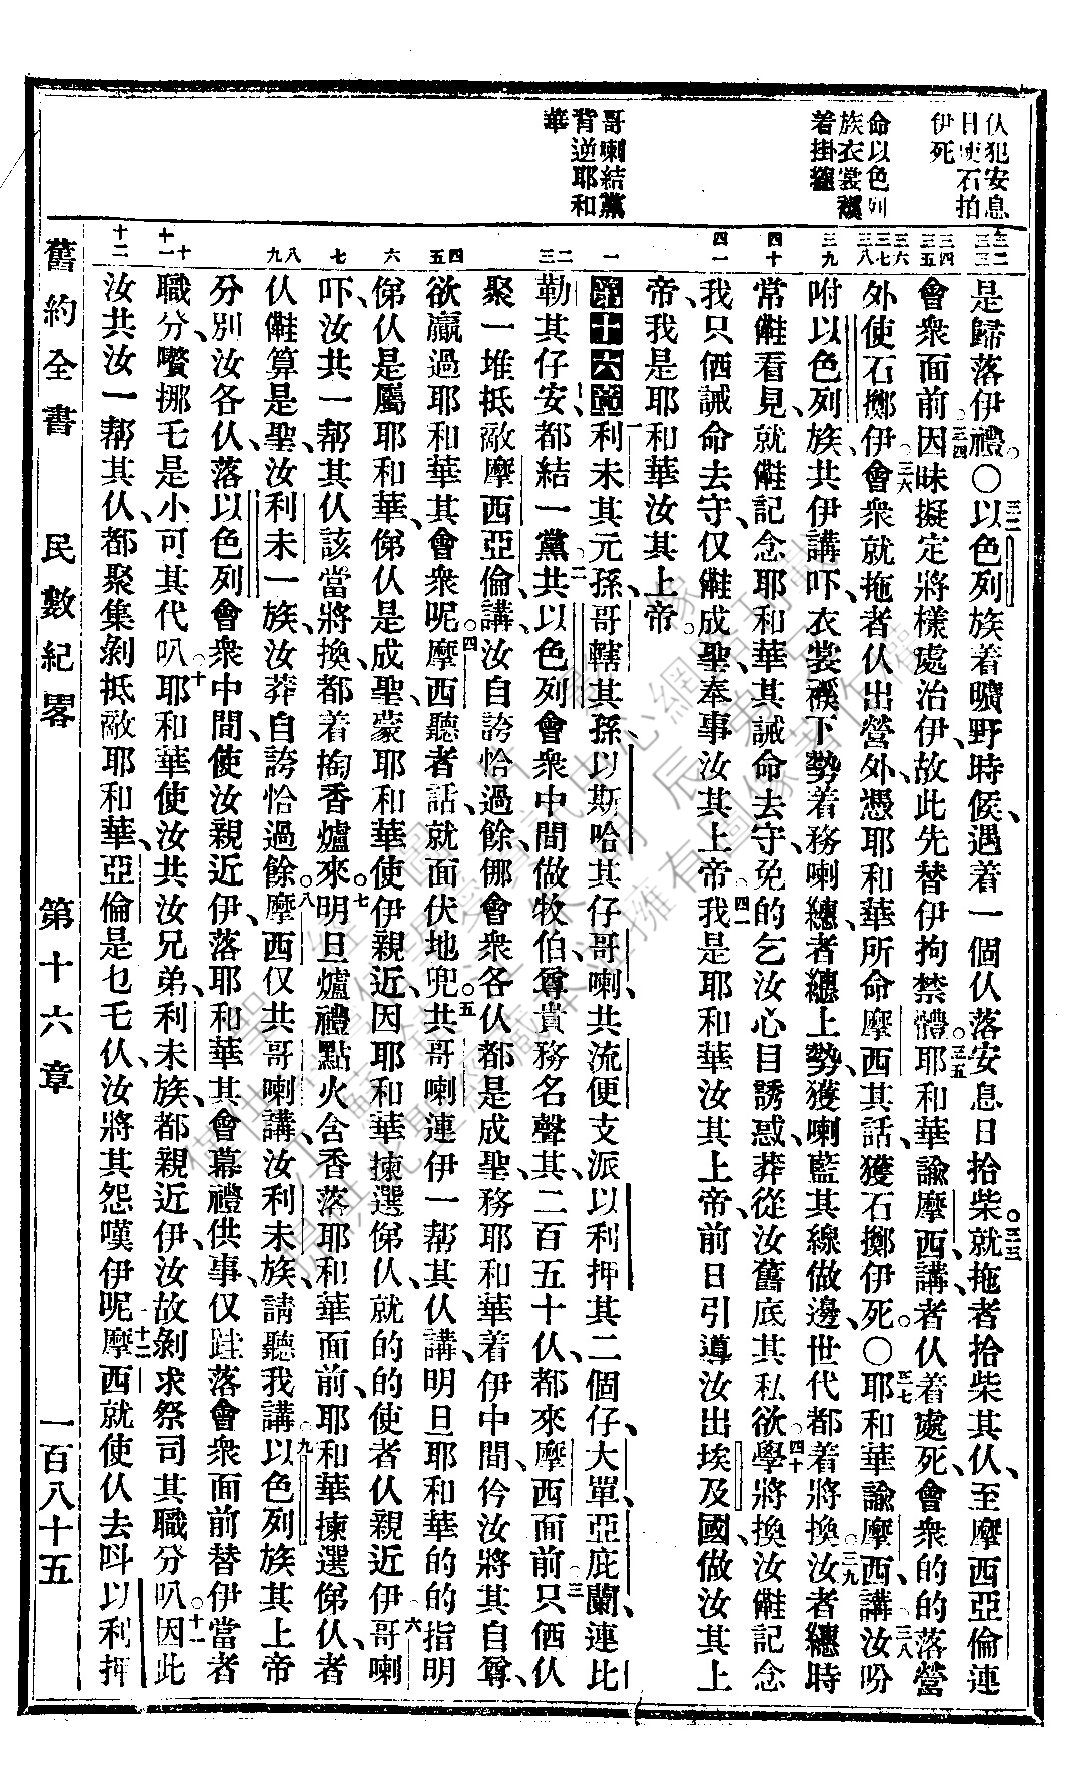 仈犯安息
日使石拍
伊死
命以色列
族衣裳襆
着掛繐
哥喇結黨
背逆耶和
華
是歸落伊禮。〇三二以色列族着曠野時候、遇着一個仈落安息日拾柴。三三就拖者拾柴其仈、至摩西亞倫連
會衆面前。三四因昧擬定將樣處治伊、故此先替伊拘禁禮。三五耶和華諭摩西、講者仈着處死、會衆的的落營
外使石擲伊。三六會衆就拖者仈出營外、憑耶和華所命摩西其話、獲石擲伊死。〇三七耶和華諭摩西、講三八汝吩
咐以色列族、共伊講吓、衣裳襆下勢着務喇繐、者繐上勢、獲喇藍其線做邊、世代都着將換。三九汝者繐時
常儺看見、就儺記念耶和華其誡命去守、免的乞汝心目誘惑、莽從汝舊底其私欲。四十學將換汝儺記念
我只俤誡命去守、仅儺成聖、奉事汝其上帝。四一我是耶和華汝其上帝、前日引導汝出埃及國、做汝其上
帝、我是耶和華汝其上帝。
第十六章一利未其元孫、哥轄其孫、以斯哈其仔哥喇、共流便支派以利押其二個仔、大單、亞庇蘭、連比
勒其仔安、都結一黨。二共以色列會衆中間做牧伯、尊貴務名聲其、二百五十仈、都來摩西面前。三只俤仈
聚一堆抵敵摩西亞倫、講、汝自誇恰過餘、㑚會衆各仈都是成聖、務耶和華着伊中間、伱汝將其自尊、
欲贏過耶和華其會衆呢。四摩西聽者話、就面伏地兜。五共哥喇連伊一幫其仈講、明旦耶和華的的指明
俤仈是屬耶和華、俤仈是成聖、蒙耶和華使伊親近、因耶和華揀選俤仈、就的的使者仈親近伊。六哥喇
吓、汝共一幫其仈該當將換、都着掏香爐來。七明旦爐禮點火含香、落耶和華面前、耶和華揀選俤仈、者
仈儺算是聖、汝利未一族、汝莽自誇恰過餘。八摩西仅共哥喇講、汝利未族、請聽我講。九以色列族其上帝
分別汝各仈落以色列會衆中間、使汝親近伊、落耶和華其會幕禮供事、仅跬落會衆面前、替伊當者
職分、嚽挪乇是小可其代叭。十耶和華使汝共汝兄弟、利未族、都親近伊、汝故剝求祭司其職分叭。十一因此
汝共汝一幫其仈、都聚集剝抵敵耶和華、亞倫是乜乇仈、汝將其怨嘆伊呢。十二摩西就使仈去呌以利押
舊約全書 民數紀畧 第十六章 一百八十五